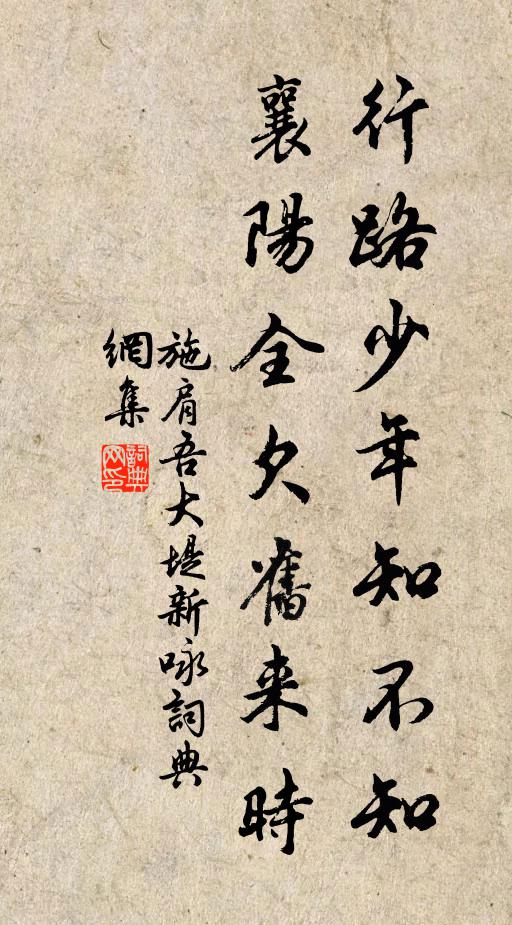 行路少年知不知
襄陽全欠舊来時
施肩吾大堤新咏詞典
網集
詞典网印